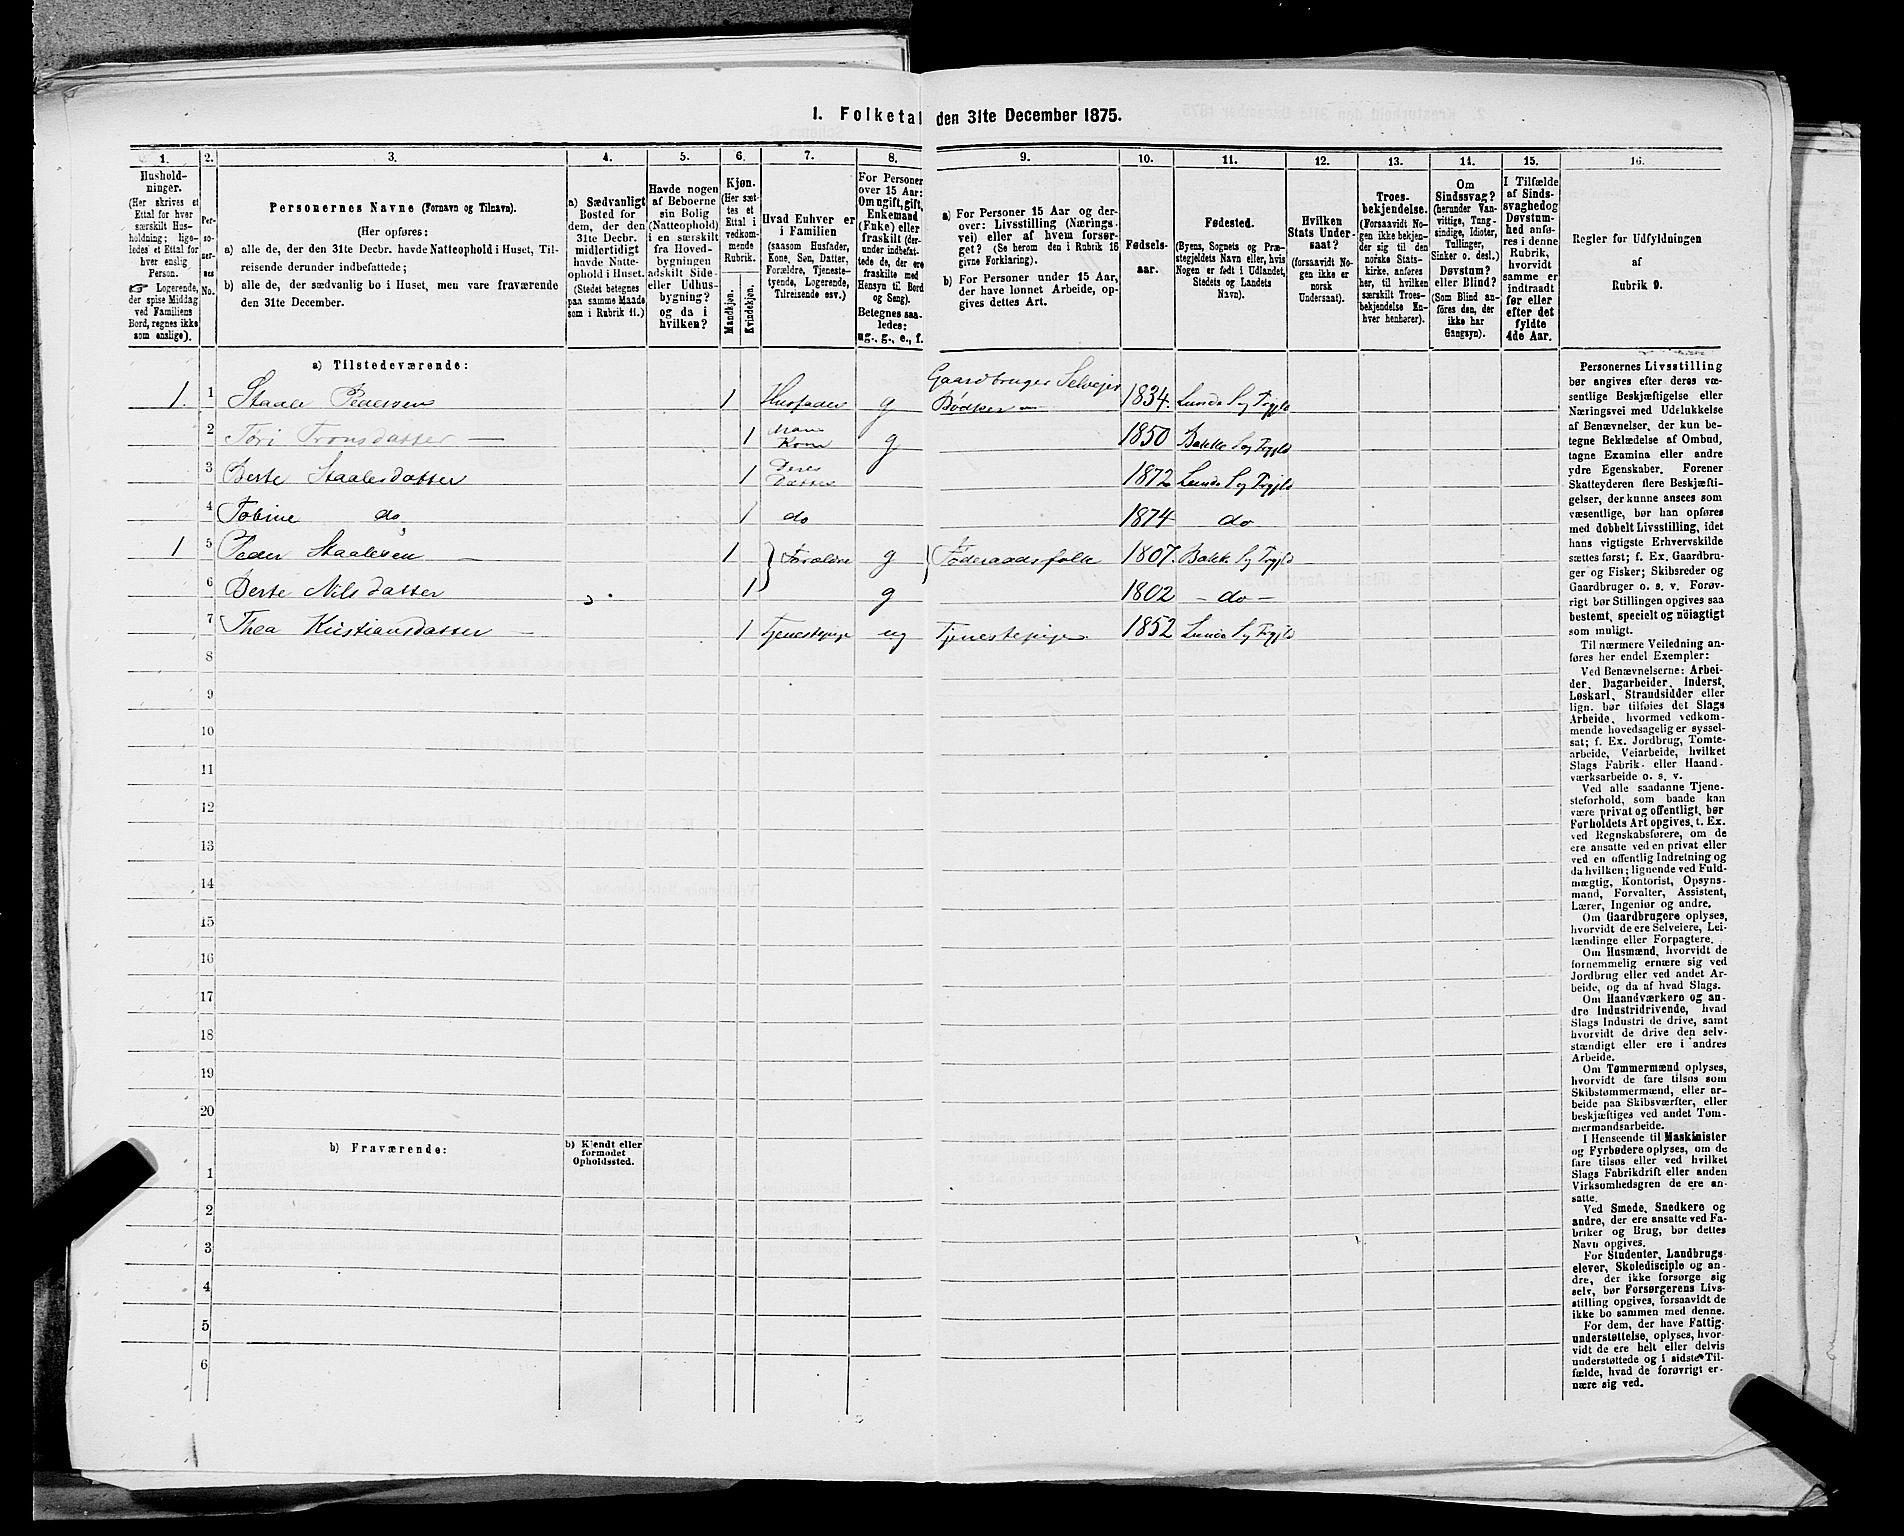 1. Folketal den 31te December 1875.
1. 2. 3. 4. 5. 6. 7. 8. 9. 10. 11. 12. 13. 14. 15. 16.
Hushold-
ninger.
(Her skrives et
Ettal for hver
særskilt Hus-
holdning; lige-
ledes et Ettal for
hver enslig
Person.
☞ Logerende,
der spise Middag
ved Familiens
Bord, regnes ikke
som enslige).
Per-
so-
ner-
nes
No.
Personernes Navne (Fornavn og Tilnavn).
(Her opføres:
a) alle de, der den 31te Decbr. havde Natteophold i Huset, Til-
reisende derunder indbefattede;
b) alle de, der sædvanlig bo i Huset, men vare fraværende
den 31te December.
a) Sædvanligt
Bosted for
dem, der den
31te Decbr.
midlertidigt
havde Natte-
ophold i Huset.
(Stedet betegnes
paa samme Maade
som i Rubrik 11.)
Havde nogen
af Beboerne
sin Bolig
(Natteophold)
i en særskilt
fra Hoved-
bygningen
adskilt Side-
eller Udhus-
bygning?
og da i
hvilken?
Kjøn.
(Her sæt-
tes et
Ettal i
vedkom-
mende
Rubrik.
Mandkjøn.
Kvindekjøn.
Hvad Enhver er
i Familien
(saasom Husfader,
Kone, Søn, Datter,
Forældre, Tjeneste-
tyende, Logerende,
Tilreisende osv.)
For Personer
over 15 Aar:
Om ugift, gift,
Enkemand
(Enke) eller
fraskilt (der-
under indbefat-
tede de, der ere
fraskilte med
Hensyn til Bord
og Seng).
Betegnes saa-
ledes:
ug., g., e., f.
a) For Personer 15 Aar og der-
over: Livsstilling (Nærings-
vei) eller af hvem forsør-
get? (Se herom den i Rubrik 16
givne Forklaring).
b) For Personer under 15 Aar,
der have lønnet Arbeide, op-
gives dettes Art.
Fødsels-
aar.
Fødested.
(Byens, Sognets og Præ-
stegjeldets Navn eller, hvis
Nogen er født i Udlandet,
Stedets og Landets
Navn).
Hvilken
Stats Under-
saat?
(forsaavidt No-
gen ikke er
norsk
Undersaat).
Troes-
bekjendelse.
(Forsaavidt No-
gen ikke bekjen-
der sig til den
norske Stats-
kirke, anføres
her, til hvilken
særskilt Troes-
bekjendelse En-
hver henhører).
Om
Sindssvag?
(herunder Van-
vittige, Tung-
sindige, Idioter,
Tullinger,
Sinker o. desl.)
Døvstum?
eller Blind?
(Som Blind an-
føres den, der
ikke har
Gangsyn).
I Tilfælde
af Sinds-
svaghed og
Døvstum-
hed anfø-
res i denne
Rubrik,
hvorvidt
samme er
indtraadt
før eller
efter det
fyldte
4de Aar.
Regler for Udfyldningen
af
Rubrik 9.
a) Tilstedeværende:
Gaardbruger Selveier
1. 1 Staale Pedersen 1 Husfader g Bødker 1834. Lunde S og Prgjld
2 Tori Tronsdatter — 1 Hans Kone g 1850 Bakke S og Prgjld
3 Berte Staalesdatter 1 Deres Datter 1872 Lunde S og Prgjld
4 Tobine do 1 do 1874 do
1 5 Peder Staalesen — 1 Forældre g Føderaadsfolk 1807. Bakke S og Prgjld
6 Berte Nilsdatter 1 g 1802 – do –
7 Thea Kristiansdatter — 1 Tjenestepige ug Tjenestepige 1852 Lunde S og Prgjld
8
9
10
11
12
13
14
15
16
17
18
19
20
b) Fraværende:
b) Kjendt eller
formodet
Opholdssted.
1
2
3
4
5
6
Personernes Livsstilling
bør angives efter deres væ-
sentlige Beskjæftigelse eller
Næringsvei med Udelukkelse
af Benævnelser, der kun be-
tegne Beklædelse af Ombud,
tagne Examina eller andre
ydre Egenskaber. Forener
Skatteyderen flere Beskjæfti-
gelser, der kunne ansees som
væsentlige, bør han opføres
med dobbelt Livsstilling, idet
hans vigtigste Erhvervskilde
sættes først; f. Ex. Gaardbru-
ger og Fisker; Skibsreder og
Gaardbruger o. s. v. Forøv-
rigt bør Stillingen opgives saa
bestemt, specielt og nöiagtigt
som muligt.
Til nærmere Veiledning an-
føres her endel Exempler:
Ved Benævnelserne: Arbei-
der, Dagarbeider, Inderst,
Løskarl, Strandsidder eller
lign. bør tilføies det Slags
Arbeide, hvormed vedkom-
mende hovedsagelig er syssel-
sat; f. Ex. Jordbrug, Tomte-
arbeide, Veiarbeide, hvilket
Slags Fabrik- eller Haand-
værksarbeide o. s. v.
Ved alle saadanne Tjene-
steforhold, som baade kan
være privat og offentligt, bør
Forholdets Art opgives, t. Ex.
ved Regnskabsførere, om de
ere ansatte ved en privat eller
ved en offentlig Indretning og
da hvilken; lignende ved Fuld-
mægtig, Kontorist, Opsyns-
mand, Forvalter, Assistent,
Lærer, Ingeniør og andre.
Om Gaardbrugere oplyses,
hvorvidt de ere Selveiere, Lei-
lændinge eller Forpagtere.
Om Husmænd, hvorvidt de
fornemmelig ernære sig ved
Jordbrug eller ved andet Ar-
beide, og da af hvad Slags.
Om Haandværkere og an-
dre Industridrivende, hvad
Slags Industri de drive, samt
hvorvidt de drive den selv-
stændigt eller ere i andres
Arbeide.
Om Tømmermænd oplyses,
hvorvidt de fare tilsøs som
Skibstømmermænd, eller ar-
beide paa Skibsværfter, eller
beskjæftiges ved andet Tøm-
mermandsarbeide.
I Henseende til Maskinister
og Fyrbødere oplyses, om de
fare tilsøs eller ved hvilket
Slags Fabrikdrift eller anden
Virksomhedsgren de ere an-
satte.
Ved Smede, Snedkere og
andre, der ere ansatte ved Fa-
briker og Brug, bør dettes
Navn opgives.
For Studenter, Landbrugs-
elever, Skoledisciple og an-
dre, der ikke forsørge sig
selv, bør Forsørgerens Livs-
stilling opgives, forsaavidt de
ikke bo sammen med denne.
For dem, der have Fattig-
understøttelse, oplyses, hvor-
vidt de ere helt eller delvis
understøttede og i sidste Til-
fælde, hvad de forøvrigt er-
nære sig ved.